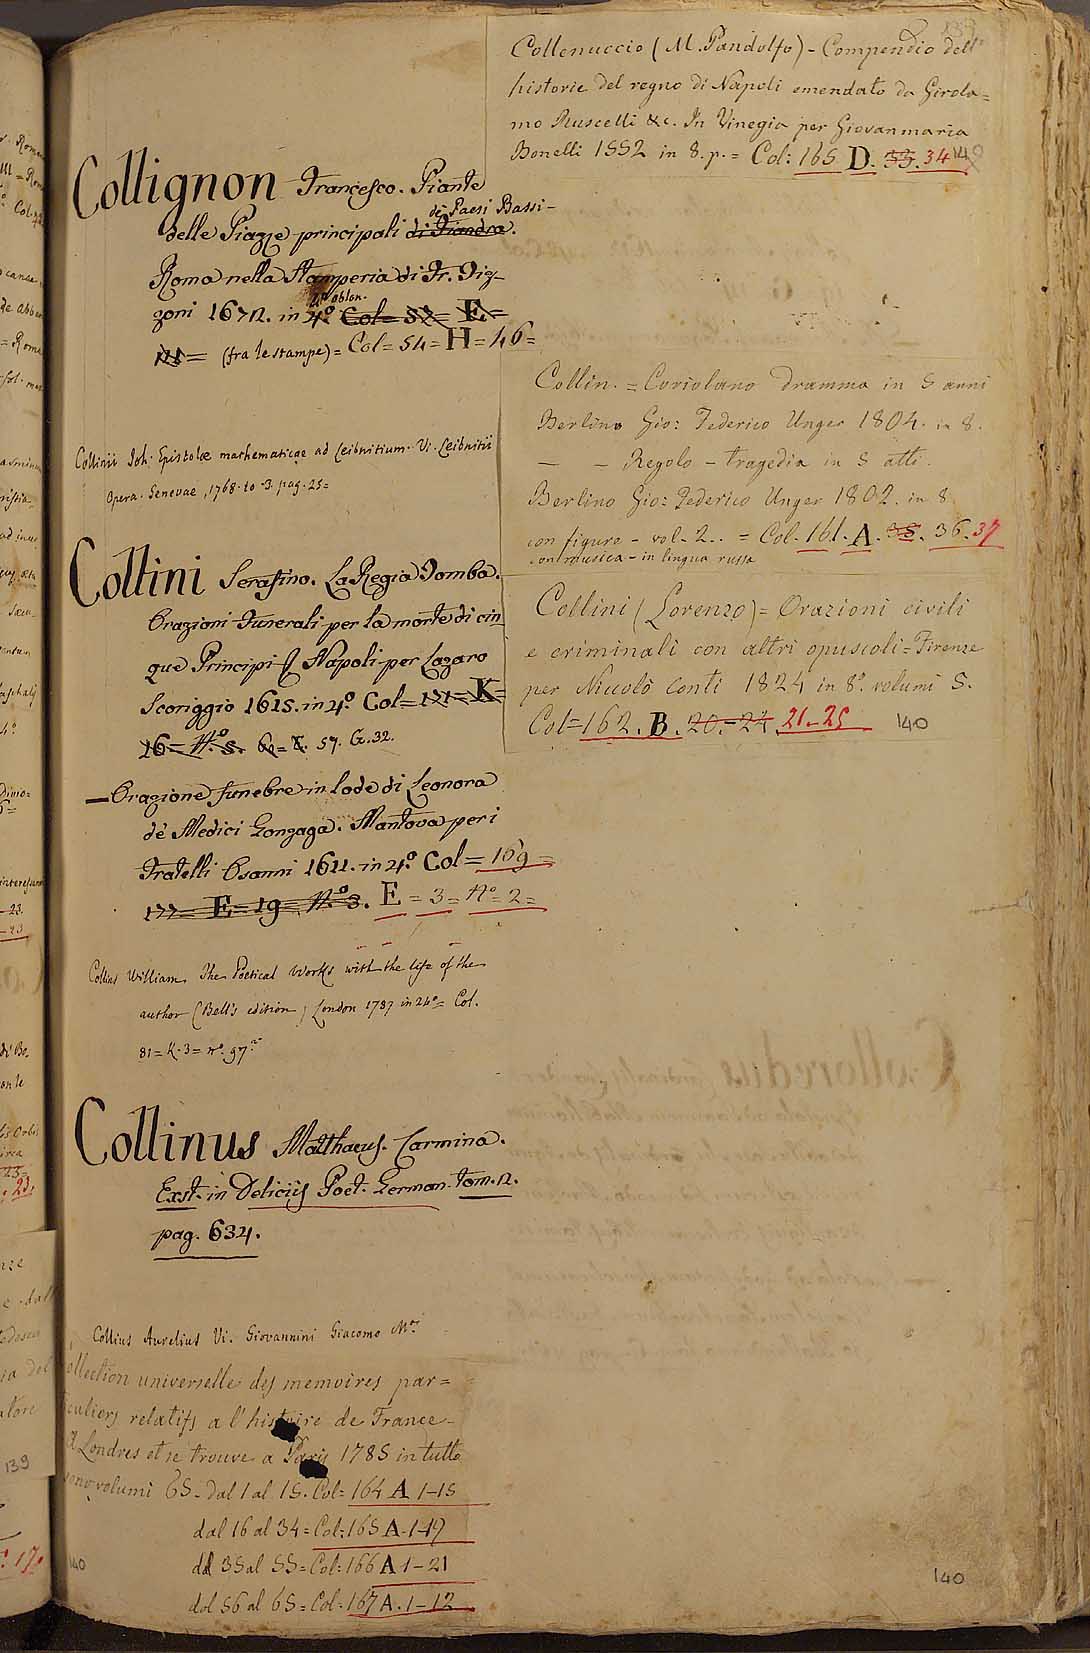 Collignon Francesco. Piante
delle Piazze principali di Fiandra.
de Paesi Bassi-
Roma nella Stamperia di Fr. Diz-
zoni 1672. in 4º Col= 52= E.=
4º oblon.
(fra le stampe) = Col= 54= H= 46=
Collinii Joh: Epistolæ mathematicæ ad Leibnitium. Vi. Leibnitii
Opera. Genevae, 1768. to. 3. pag. 25=
Collini Serafino. La Regia Tomba.
Orazioni Funerali per la morte di cin-
que Principi Napoli per Lazaro
Scoriggio 1615. in 4º. Col= 171= K=
16= Nº 5. 57. G. 32.
—Orazione funebre in lode di Leonora
de' Medici Gonzaga. Mantova per i
Fratelli Osanni 1611. in 4º. Col= 169=
177= E= 19= Nº 3. E= 3= Nº= 2=
Collins William. The Poetical Works with the life of the
author (Bell's edition) London 1787 in 24º= Col.
81= K. 3= nº. 97.
Collinus Matthaeus. Carmina.
Exst. in Deliciis Poet. German. tom. 2.
pag. 634.
Collius Aurelius Vi. Giovannini Giacomo Mª.
ollection universelle des memoires par=
iculiers relatifs a l'histoire de France-
a Londres et se trouve a Paris 1785 in tutto
sono volumi 65- dal 1 al 15. Col= 164 A 1-15
dal 16 al 34= Col: 165 A-1-19
dal 35 al 55= Col: 166 A 1-21
dal 56 al 65= Col: 167 A. 1-12
140
Collenuccio (M. Pandolfo) - Compendio dell'
historie del regno di Napoli emendato da Girola=
mo Ruscelli &c. In Vinegia per Giovanmaria
Bonelli 1552 in 8. p.= Col: 165 D. 33. 34
Collin. = Coriolano dramma in 5 anni
Berlino Gio: Federico Unger 1804. in 8.
— - Regolo - tragedia in 5 atti.
Berlino Gio: Federico Unger 1802. in 8
con figure - vol. 2.. = Col. 161. A. 35. 36. 37
con musica - in lingua russa
Collini (Lorenzo) = Orazioni civili
e criminali con altri opuscoli= Firenze
per Niccolò Conti 1824 in 8º. volumi 5.
Col= 162. B. 20.-24. 21-25 140
140